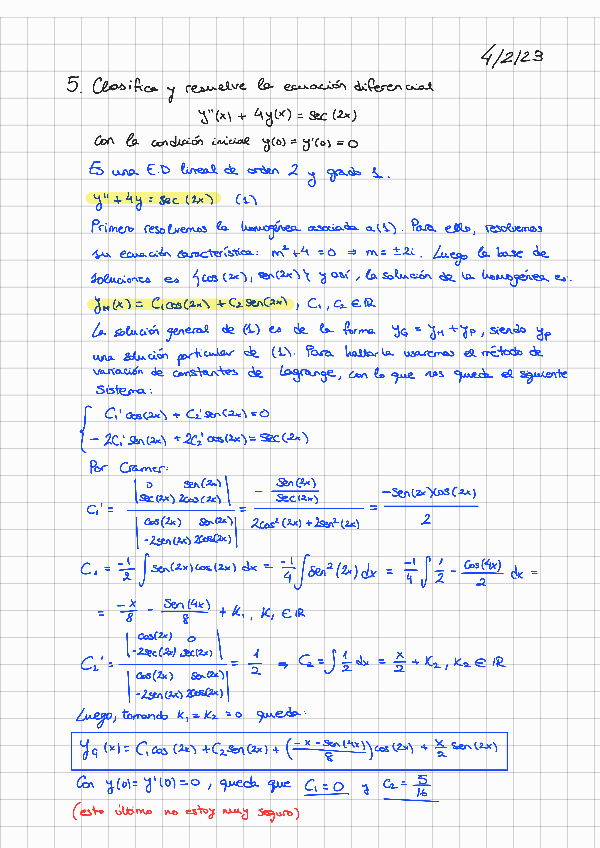 4/2/23
5. Clasifica y resuelve la ecuación diferencial
y''(x) + 4y(x) = sec(2x)
con la condición inicial y(0) = y'(0) = 0
Es una E.D lineal de orden 2 y grado 1.
y'' + 4y = sec(2x) (1)
Primero resolvemos la homogénea asociada a (1). Para ello, resolvemos
su ecuación característica: m² + 4 = 0 ⇒ m = ±2i. Luego la base de
soluciones es {cos(2x), sen(2x)} y así, la solución de la homogénea es:
y_H(x) = C₁cos(2x) + C₂sen(2x), C₁, C₂ ∈ ℝ
La solución general de (1) es de la forma y_G = y_H + y_P, siendo y_P
una solución particular de (1). Para hallarla usaremos el método de
variación de constantes de Lagrange, con lo que nos queda el siguiente
sistema:
{ C₁' cos(2x) + C₂' sen(2x) = 0
- 2C₁' sen(2x) + 2C₂' cos(2x) = sec(2x)
Por Cramer:
C₁' = |0 sen(2x); sec(2x) 2cos(2x)| / |cos(2x) sen(2x); -2sen(2x) 2cos(2x)| = - (sen(2x)/sec(2x)) / (2cos²(2x) + 2sen²(2x)) = -sen(2x)cos(2x) / 2
C₁ = -1/2 ∫ sen(2x)cos(2x) dx = -1/4 ∫ sen²(2x) dx = -1/4 ∫ 1/2 - cos(4x)/2 dx =
= -x/8 - sen(4x)/8 + K₁, K₁ ∈ ℝ
C₂' = |cos(2x) 0; -2sec(2x) sec(2x)| / |cos(2x) sen(2x); -2sen(2x) 2cos(2x)| = 1/2 ⇒ C₂ = ∫ 1/2 dx = x/2 + K₂, K₂ ∈ ℝ
Luego, tomando K₁ = K₂ = 0 queda:
y_G(x) = C₁cos(2x) + C₂sen(2x) + ((-x - sen(4x))/8) cos(2x) + x/2 sen(2x)
Con y(0) = y'(0) = 0, queda que C₁ = 0 y C₂ = 5/16
(esto último no estoy muy seguro)